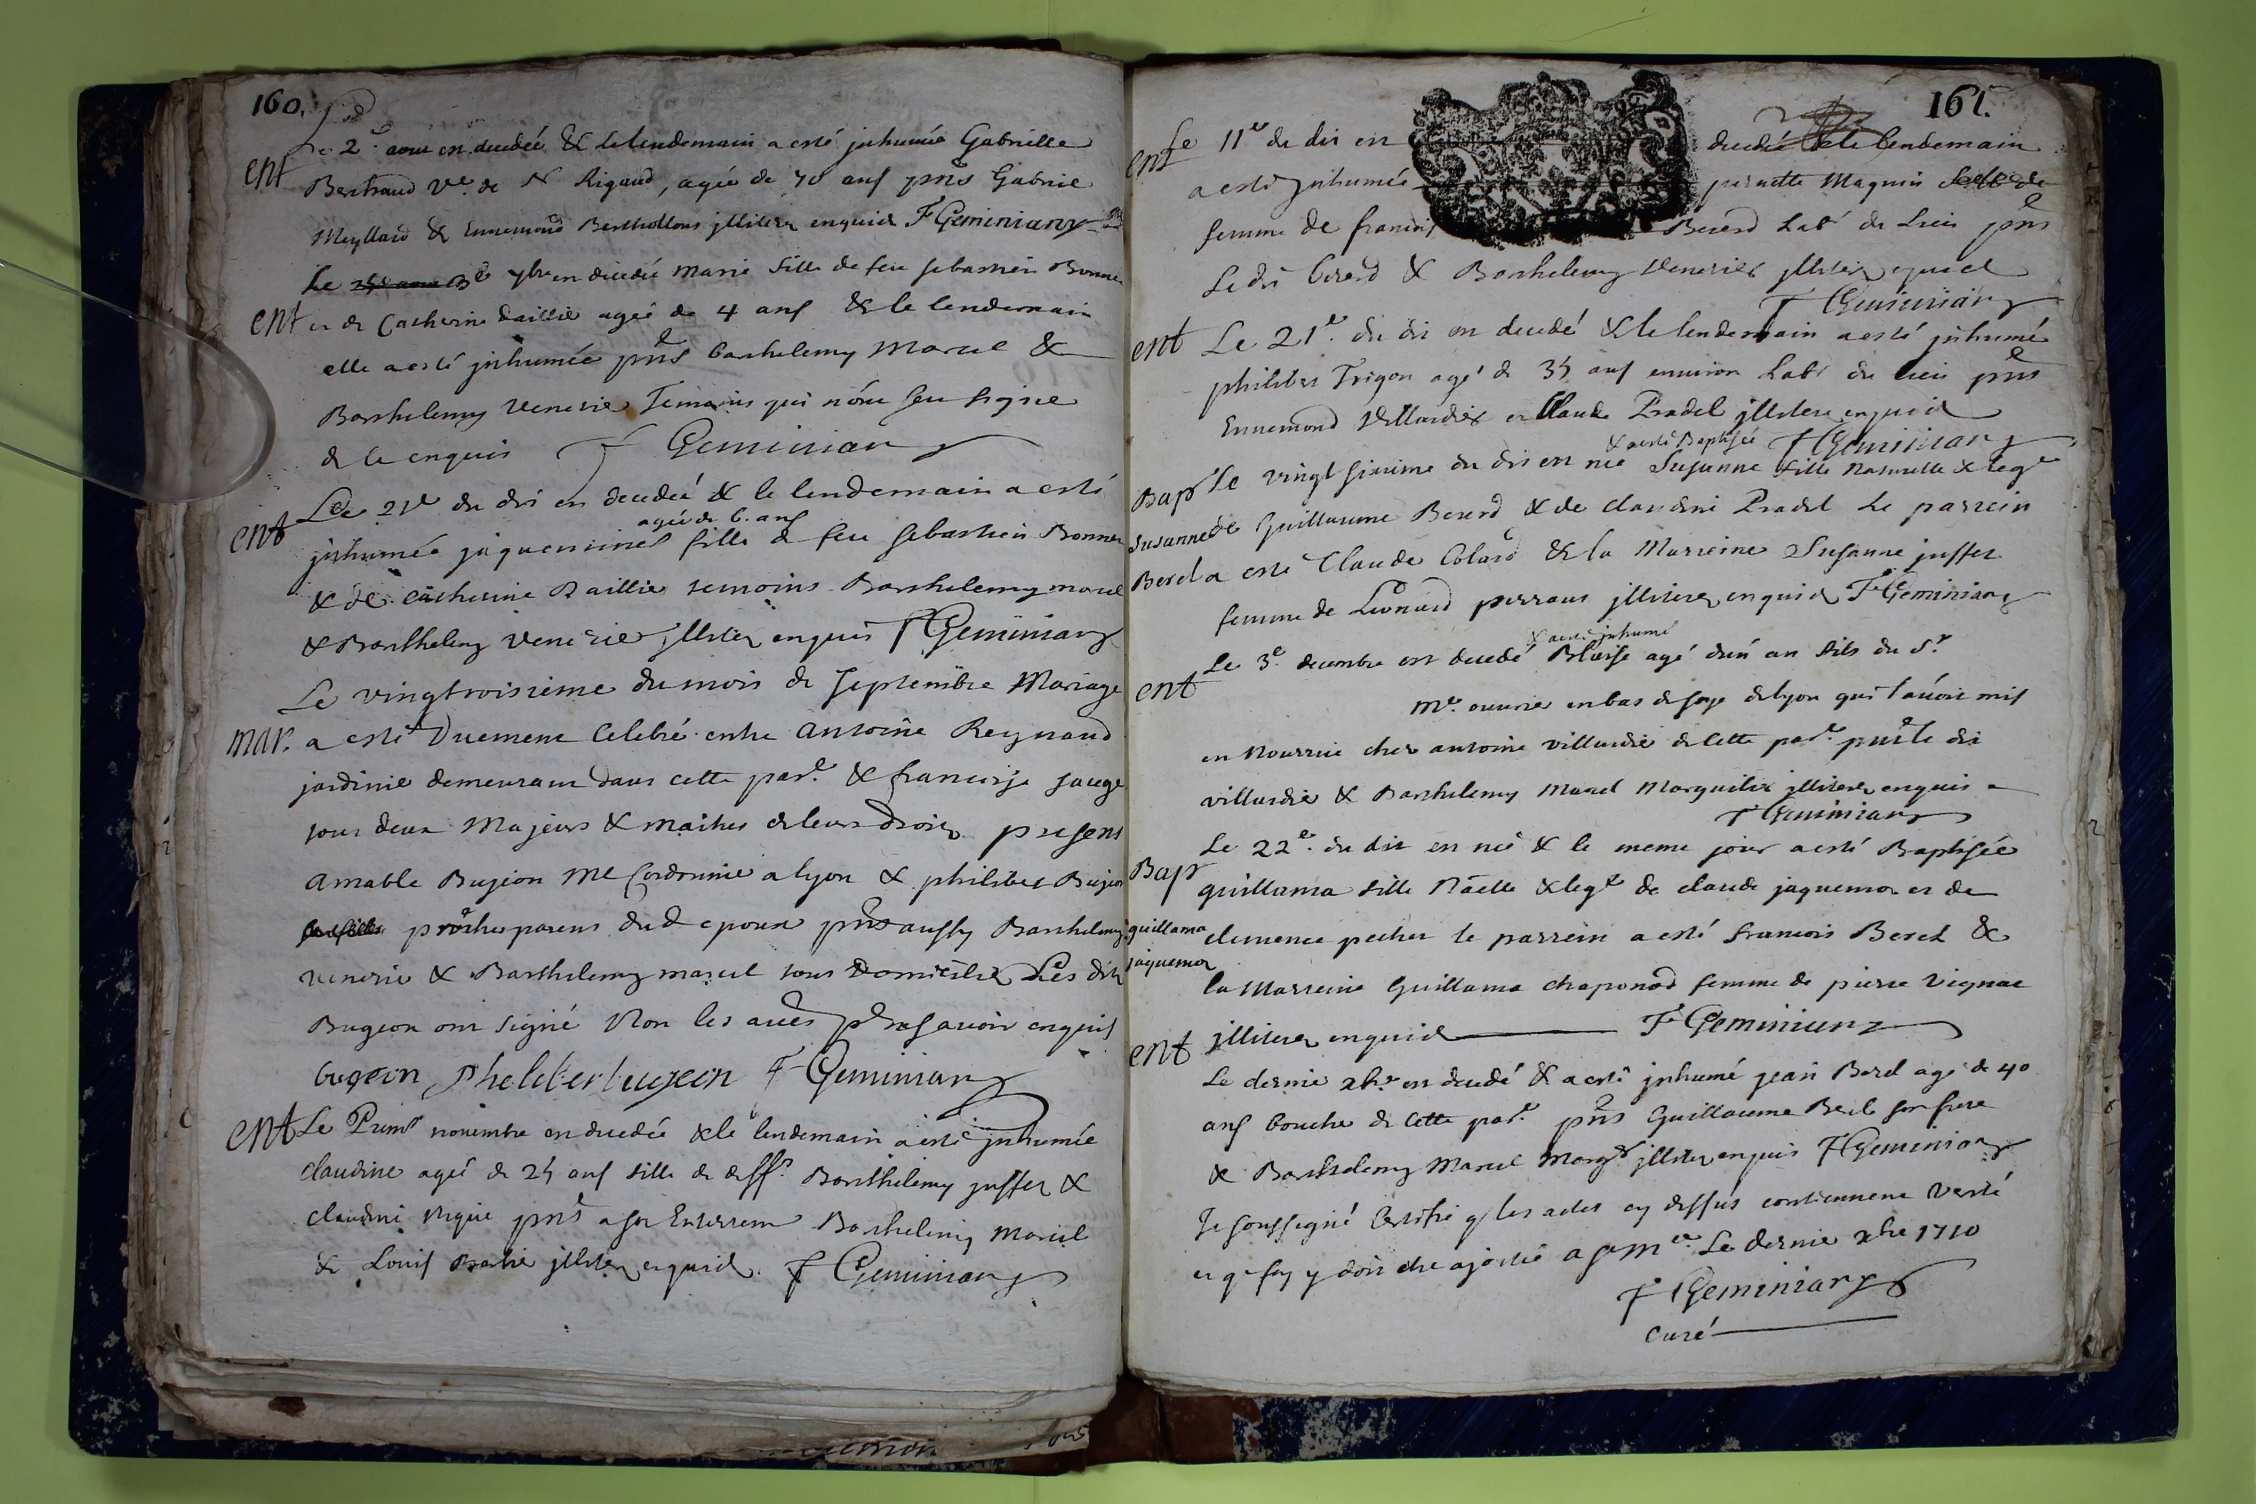 160.
ent
Le 2e aoust est decedée & le lendemain a esté jnhumée Gabrielle
Bertraud Ve. de N Rigaud, agée de 70 ans pnts Gabriel
Meyllard & Ennemond Berthollous jlliterez enquid F Geminiany
Le 7bre est decedée Marie fille de feu sebastien Bonnet
ent
et de Catherine daillie agée de 4 ans & le lendemain
elle a esté jnhumée pnts barthelemy Marcel &
Barthelemy Venerie Temoins qui n'ont sceu signe
de ce enquis F Geminiany
ent
Le 21e du dit est decedeé & le lendemain a esté
agée de 6. ans
jnhumée jaquemine fille de feu sebastien Bonnet
& de catherine Daillie temoins Barthelemy marcel
& Barthelemy Venerie jlliterez enquis F Geminiany
Le vingtroisieme du mois de septembre Mariage
mar.
a esté Duement Celebré entre Antoine Reynaud
jardinie demeurant dans cette par.e & francoise sauge
tous deux Majeurs & maitres de leurs droits presens
Amable Bugion Me Cordonnie a lyon & philibert Bugion
proches parens dud epoux pnts aussy Barthelemy
venerie & Barthelemy marcel tous Domicilies Les dits
Bugeon ont signé Non les autres pour ne savoir enquis
bugeon philibert bugeon F Geminiany
ent
Le Prem.r novembre est decedée & le lendemain a esté jnhumée
claudine agée de 25 ans fille de deff.t Barthelemy juffet &
claudine pnts a son Enterrem.t Barthelemy Marcel
& Louis jlliterez enquid. F Geminiany
161.
ent
Le 11e du dit est decedée & le lendemain
a esté jnhumée pernette Maguin
femme de francois Bererd Labr du lieu pnts
Le dit bererd & Barthelemy Venerier jlliterez enquid
F Geminiany
ent
Le 21e. du dit est decedé & le lendemain a esté jnhumé
philibert Trigon agé de 35 ans environ Labr du lieu pnts
Ennemond Villardier et Claude Pradel jlliterez enquid
F Geminiany
& a esté Baptisée
Bap
Le vingt sixieme du dit est née Susanne fille naturelle & leg.e
Susanne
de Guillaume Bererd & de claudine Pradel Le parrein
Berel
a esté Claude Colard & la Marreine Susanne juffet
femme de Leonard perraut jlliterez enquid F Geminiany
& a esté jnhumé
ent
Le 3e. decembre est decedé Blaise agé d'un an fils du Sr.
Me. ouvrier en bas de soye de lyon qui l'avoit mis
en Nourrice chez antoine villardie de Cette par.e pnts le dit
villardie & Barthelemy Marcel Marguilier jlliterez enquis
F Geminiany
Bap
Le 22e. du dit est née & le meme jour a esté Baptisée
guillama fille Naelle & leg.e de claude jaquemot et de
guillama
clemence pecher le parrein a esté francois Berel &
jaquemot
la Marreine Guillama chaponod femme de pierre vignat
jlliterez enquid F Geminiany
ent
Le dernie xbre est decedé & a esté jnhumé jean Berel agé de 40
ans bouche de Cette par.e pnts Guillaume Berel son frere
& Barthelemy Marcel Marg.r jlliterez enquis F Geminiany
Je soussigné Certifie q les actes cy dessus contiennent verité
et q foy y doit etre ajoutée a St Me. Le dernie xbre 1710
F Geminiany
curé